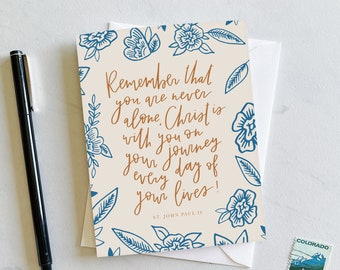 Remember that
you are never
alone. Christ is
with you on
your journey
every day of
your lives!
ST. JOHN PAUL II
COLORADO